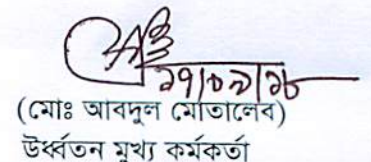 ১৭/০৯/১৮
(মোঃ আবদুল মোতালেব)
উর্ধ্বতন মুখ্য কর্মকর্তা